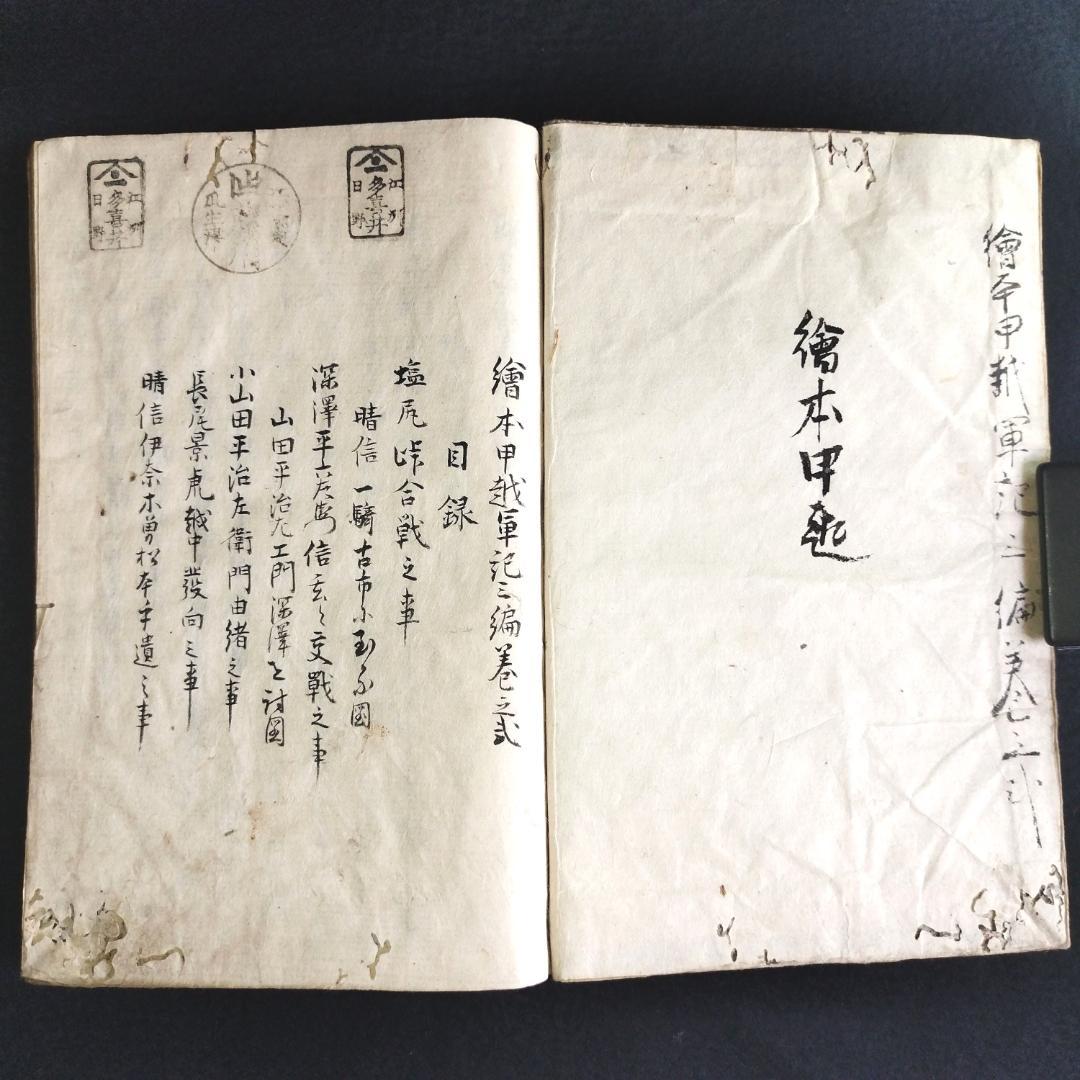 繪本甲越軍記三編巻之弐
繪本甲越
繪本甲越軍記三編巻之弐
目録
塩尻峠合戦之事
晴信一騎古市小到る圖
深澤平六左衛門信玄と交戰之事
山田平治左エ門深澤を討圖
小山田平治左衛門由緒之事
長尾景虎越中発向之事
晴信伊奈木曽松本手遺之事
江州
多喜井
日野
江州
多喜井
日野